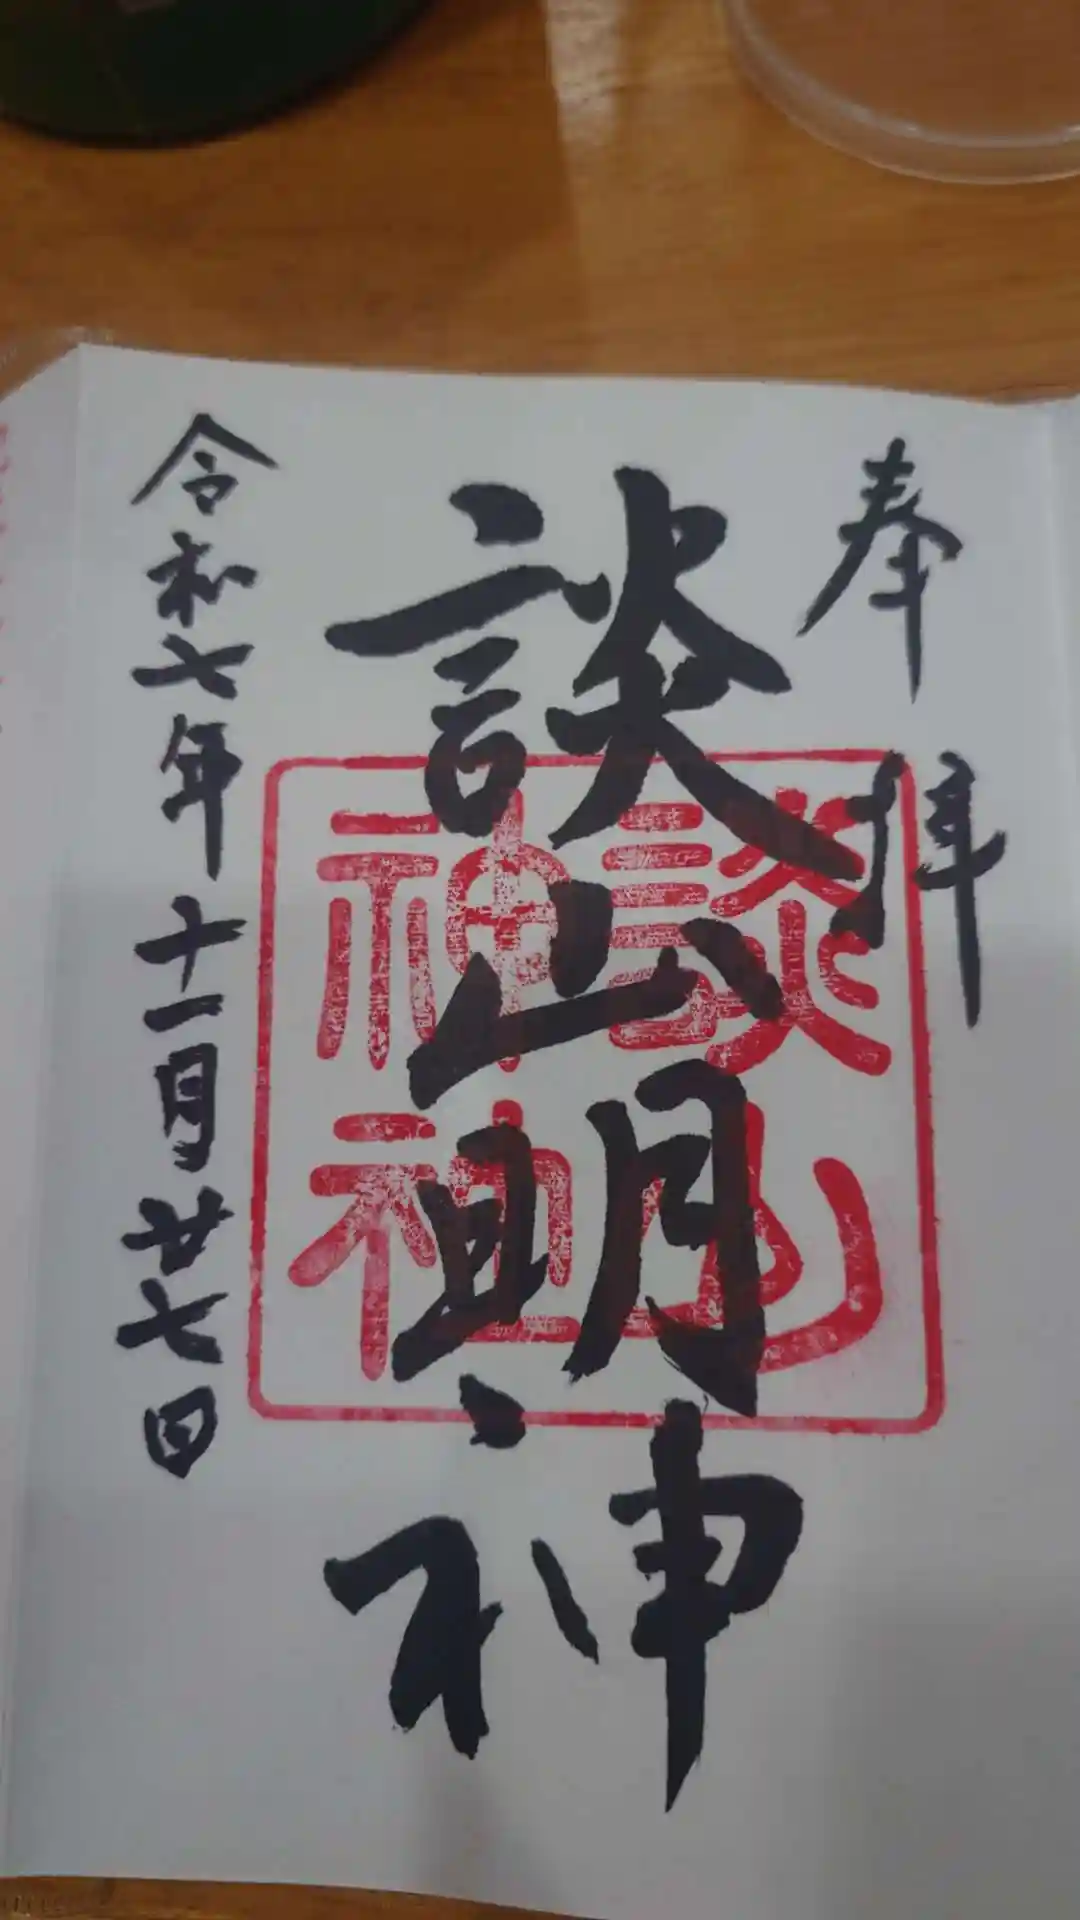 奉拝
談山明神
談山
神社
令和七年十一月廿七日